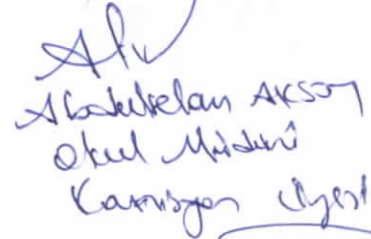 Abdulselam AKSOY
Okul Müdürü
Komisyon Üyesi